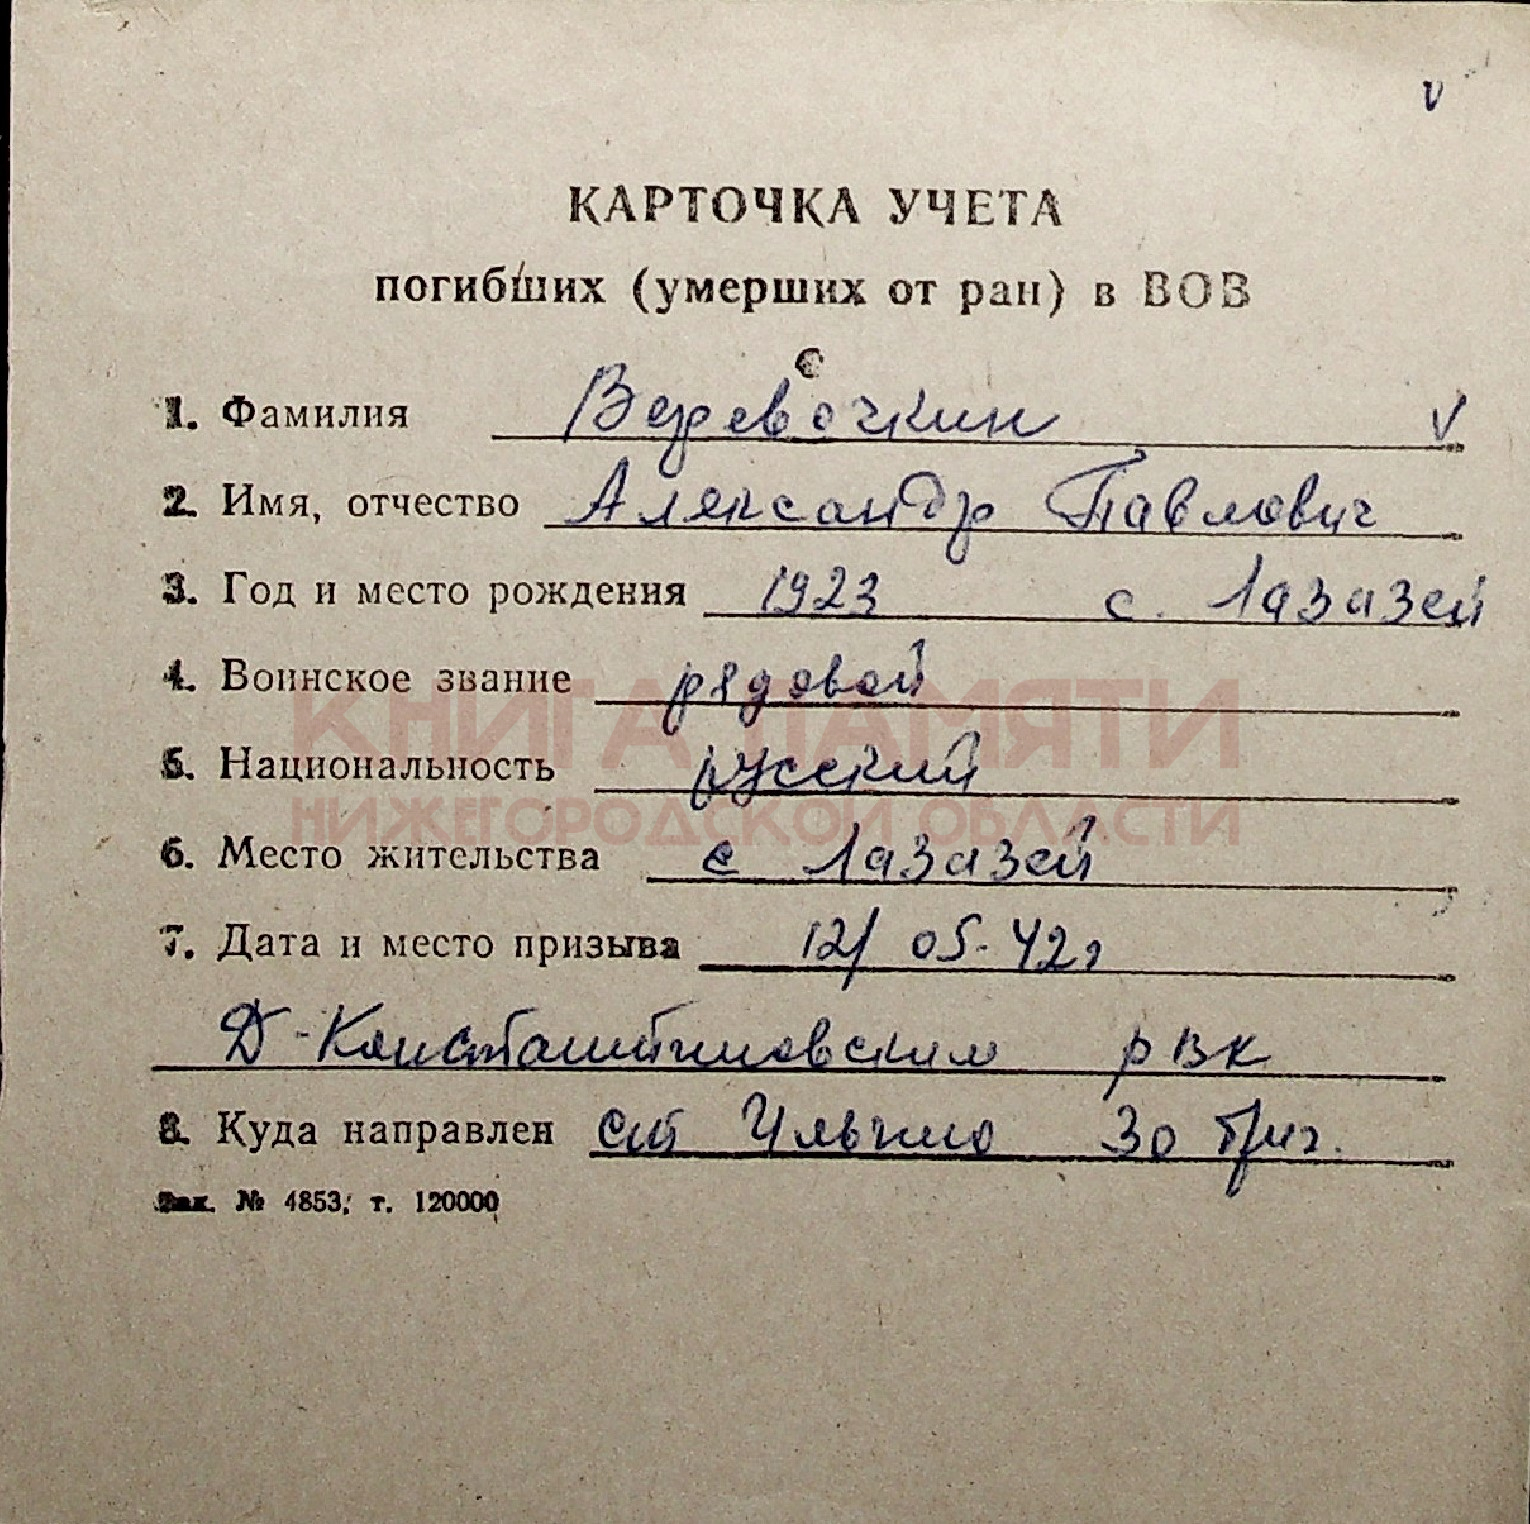 v
КАРТОЧКА УЧЕТА
погибших (умерших от ран) в ВОВ
е
1. Фамилия Веревочкин v
2. Имя, отчество Александр Павлович
3. Год и место рождения 1923 с. Лазазей
4. Воинское звание рядовой
КНИГА ПАМЯТИ
5. Национальность русский
НИЖЕГОРОДСКОЙ ОБЛАСТИ
6. Место жительства с Лазазей
7. Дата и место призыва 12/05-42г
Д-Константиновским РВК
8. Куда направлен ст Ильино 30 бриг.
Зак. № 4853, т. 120000